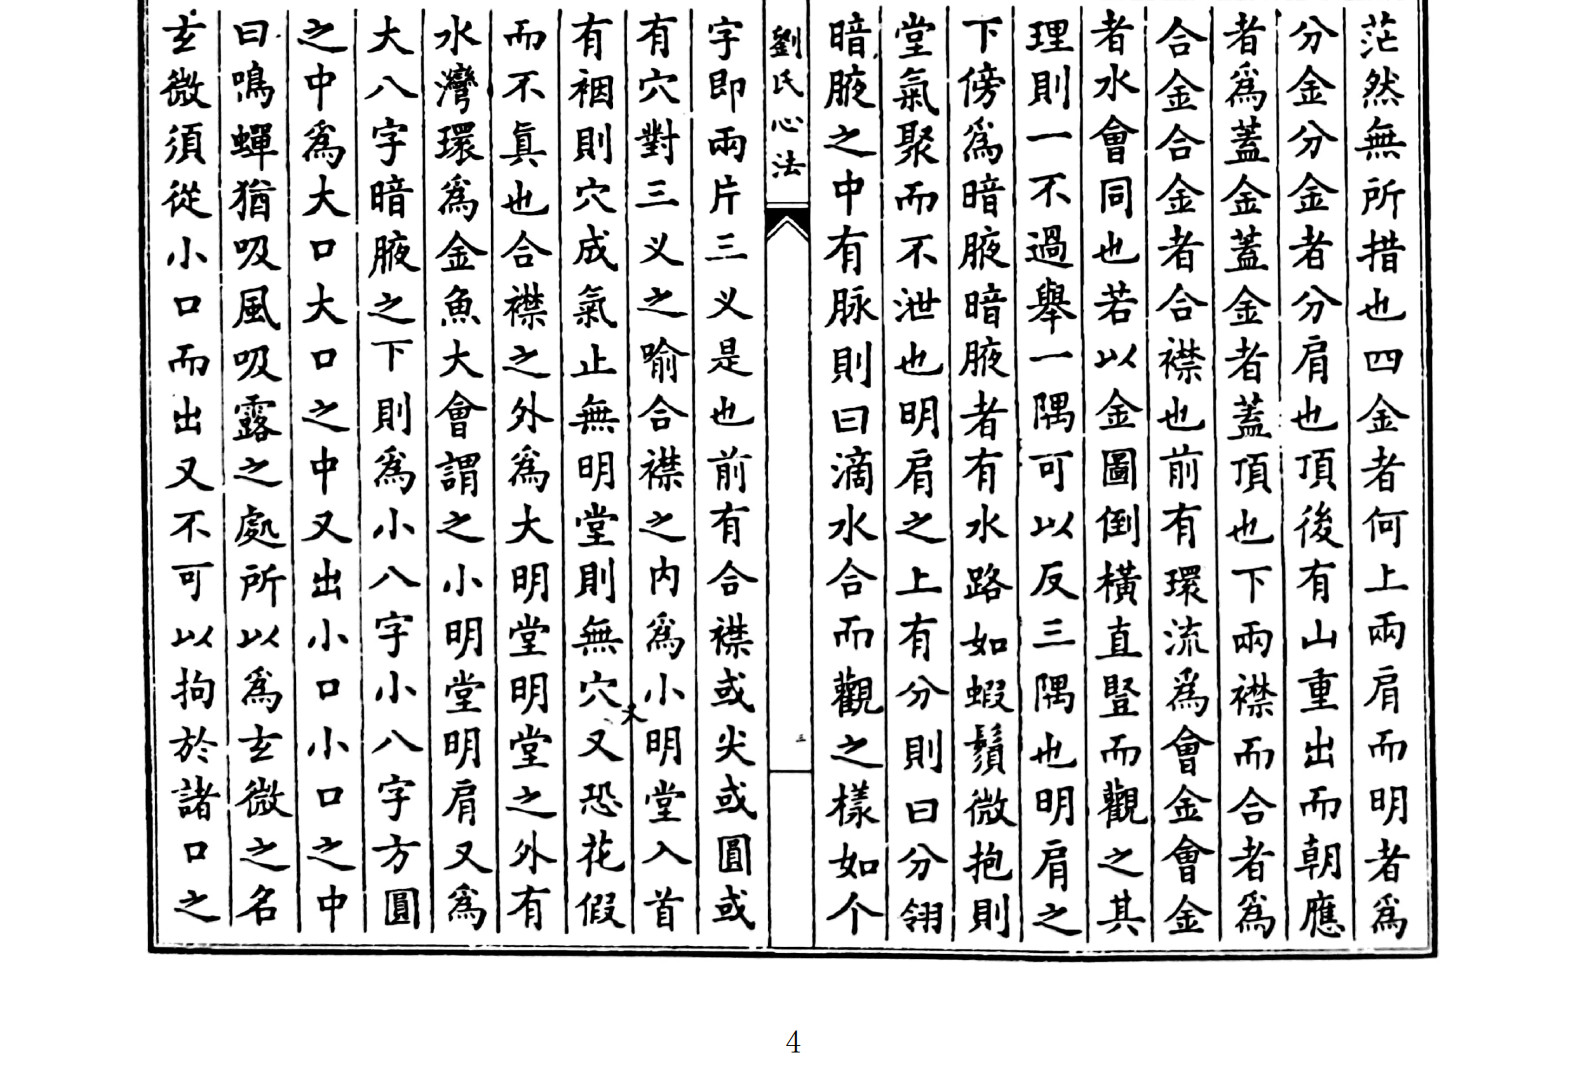 茫然無所措也四金者何上兩肩而明者爲
分金分金者分肩也頂後有山重出而朝應
者爲蓋金蓋金者蓋頂也下兩襟而合者爲
合金合金者合襟也前有環流爲會金會金
者水會同也若以金圖倒橫直豎而觀之其
理則一不過舉一隅可以反三隅也明肩之
下傍爲暗腋暗腋者有水路如蝦鬚微抱則
堂氣聚而不泄也明肩之上有分則曰分翎
暗腋之中有脉則曰滴水合而觀之樣如个
劉氏心法
三
字即兩片三义是也前有合襟或尖或圓或
有穴對三义之喻合襟之內爲小明堂入首
有裀則穴成氣止無明堂則無穴又恐花假
而不眞也合襟之外爲大明堂明堂之外有
水灣環爲金魚大會謂之小明堂明肩又爲
大八字暗腋之下則爲小八字小八字方圓
之中爲大口大口之中又出小口小口之中
曰鳴蟬猶吸風吸露之處所以爲玄微之名
玄微須從小口而出又不可以拘於諸口之
4